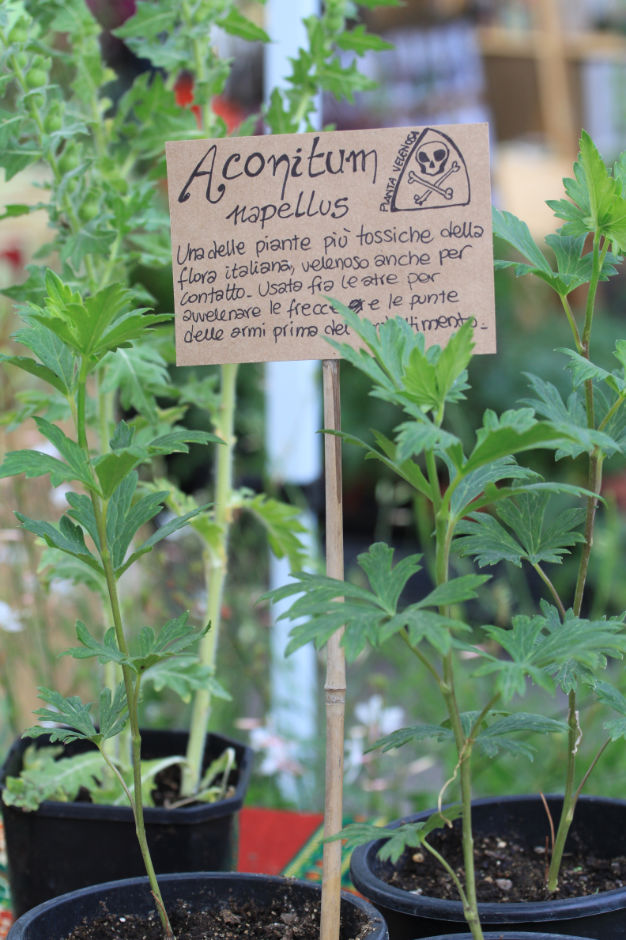 Aconitum
napellus
PIANTA VELENOSA
Una delle piante più tossiche della
flora italiana, velenoso anche per
contatto. Usata fra le altre per
avvelenare le frecce e le punte
delle armi prima del